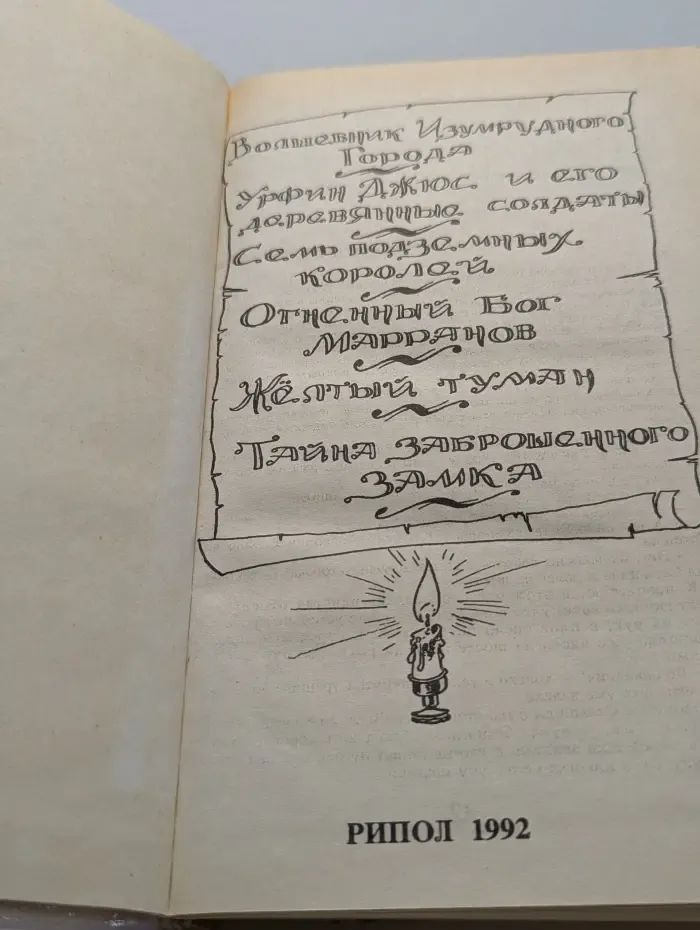 Волшебник Изумрудного
Города
Урфин Джюс и его
деревянные солдаты
Семь подземных
королей
Огненный Бог
Марранов
Жёлтый туман
Тайна заброшенного
замка
РИПОЛ 1992